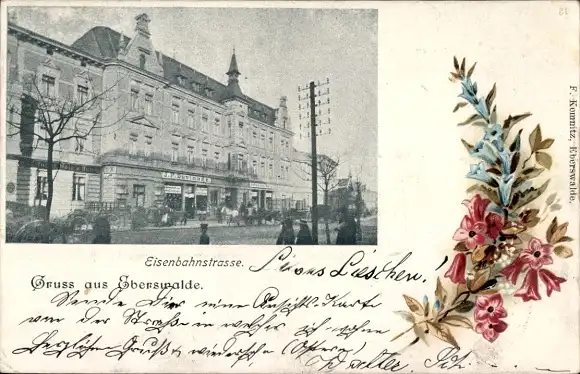 Eisenbahnstrasse.
Gruss aus Eberswalde.
F. Kommitz, Eberswalde.
Liebes Lieschen!
Sende Dir eine Ansichts-Karte
von der Straße in welcher ich wohne
Herzlichen Gruß, wiedersehn (Ostern)
Walter